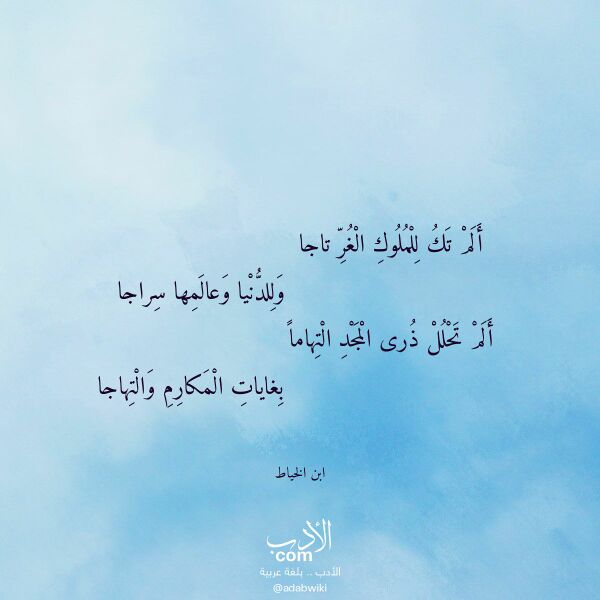 أَلَمْ تَكُ لِلْمُلُوكِ الْغُرِّ تاجا
وَلِلدُّنْيا وَعالَمِها سِراجا
أَلَمْ تَحْلُلْ ذُرى الْمَجْدِ الْتِهاماً
بِغاياتِ الْمَكارِمِ وَالْتِهاجا
ابن الخياط
الأدب
com
الأدب .. بلغة عربية
@adabwiki